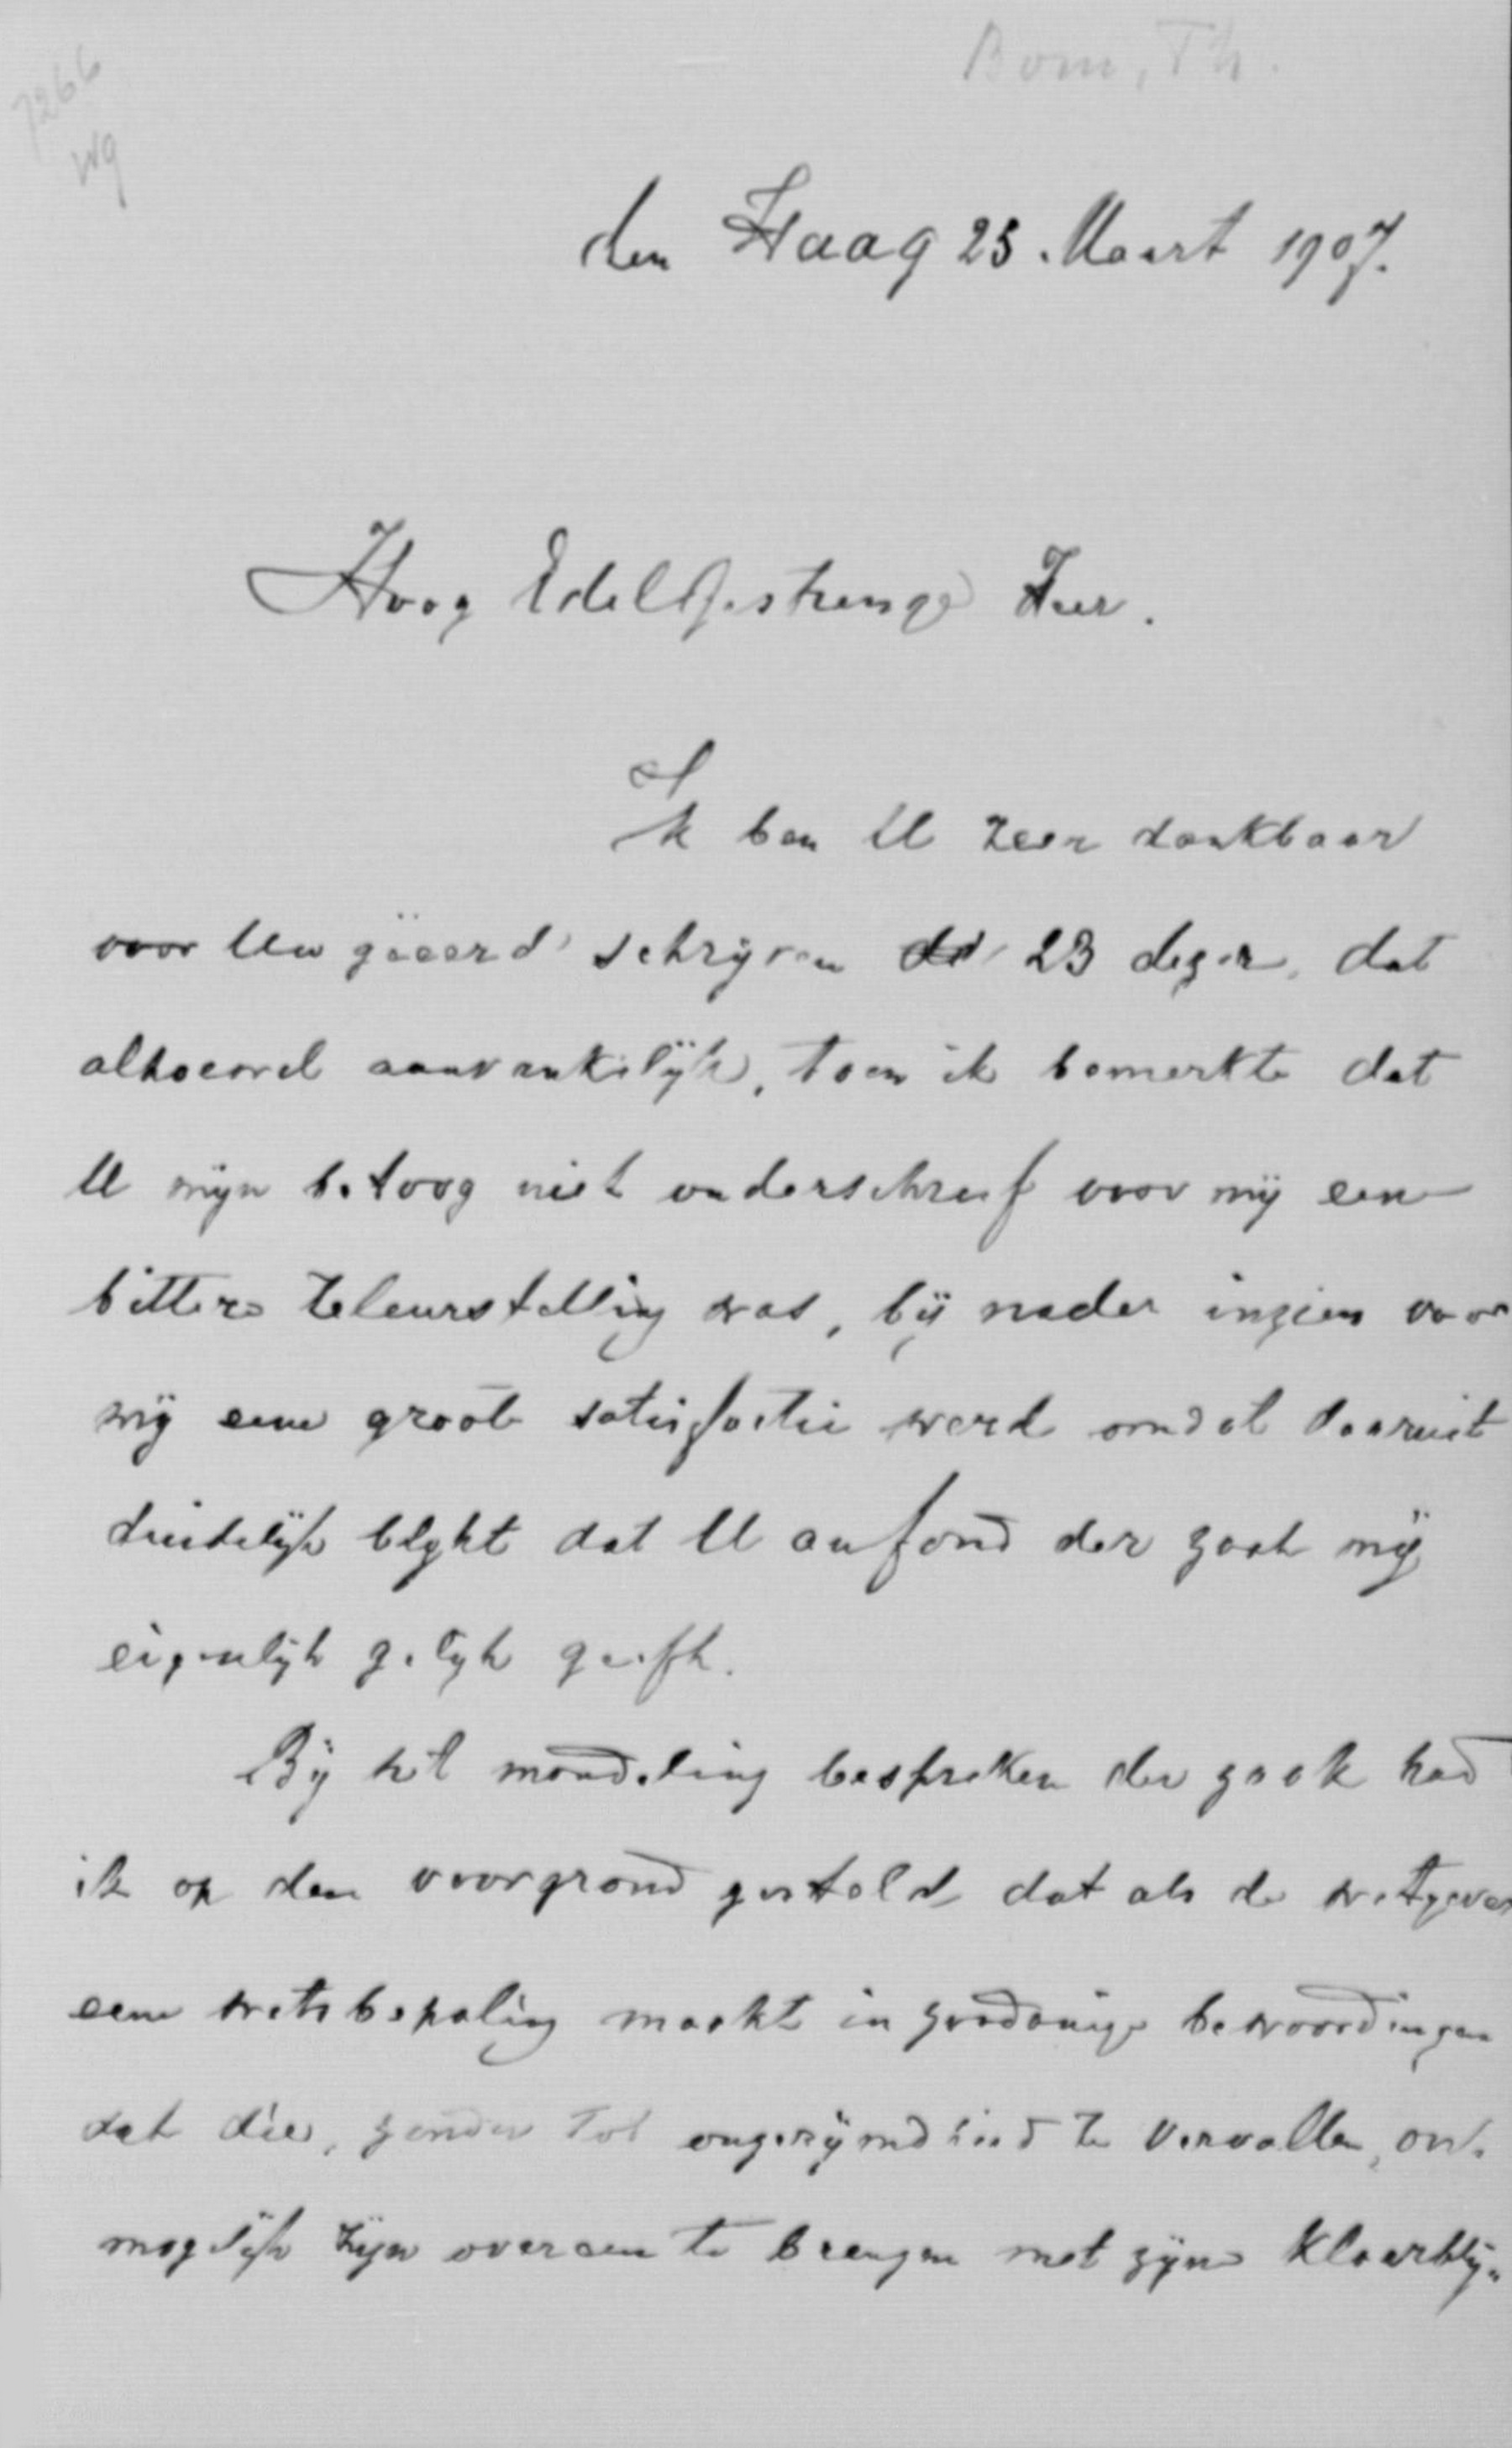 Bom, Th.
7266
den Haag 25 Maart 1907.
Hoog EdelGestrenge Heer.
Ik ben U zeer dankbaar
voor Uw geëerd schrijven dd 23 dezer, dat
alhoewel aanvankelijk, toen ik bemerkte dat
U mijn betoog niet onderschreef voor mij een
bittere teleurstelling was, bij nader inzien voor
mij eene groote satisfactie werd omdat daaruit
duidelijk blykt dat U au fond der zaak mij
eigenlijk gelyk geeft.
Bij het mondeling bespreken der zaak had
ik op den voorgrond gesteld dat als de wetgever
eene wetsbepaling maakt in zoodanige bewoordingen
dat die, zonder tot ongerijmdheid te vervallen, on-
mogelijk zijn overeen te brengen met zijne klaarblij-